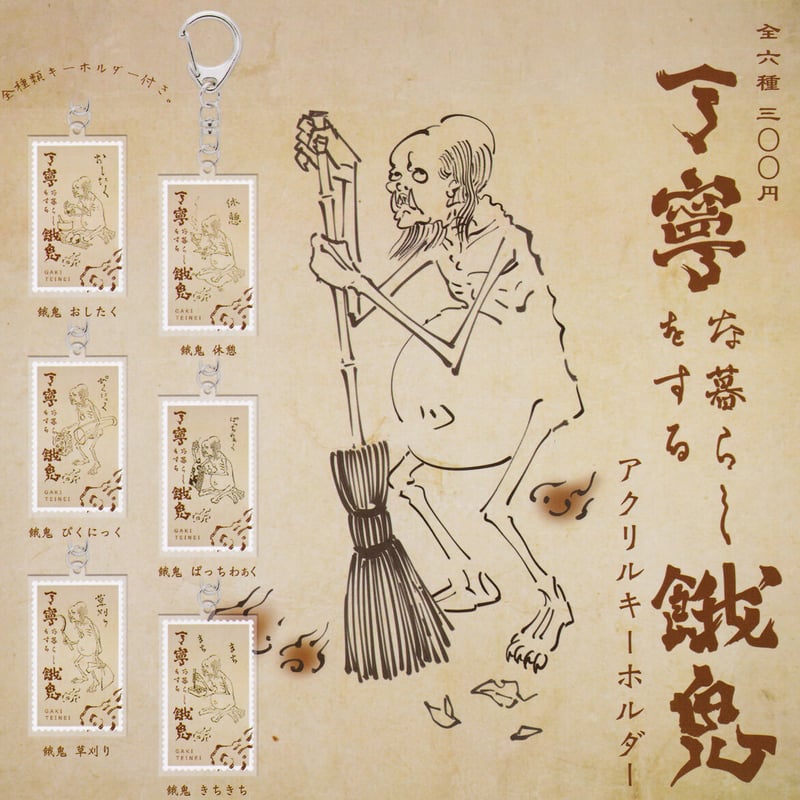 全六種 三〇〇円
丁寧な暮らしをする餓鬼
アクリルキーホルダー
全種類キーホルダー付き。
おしたく
丁寧な暮らしをする餓鬼
GAKI
TEINEI
餓鬼 おしたく
休憩
丁寧な暮らしをする餓鬼
GAKI
TEINEI
餓鬼 休憩
ぴくにっく
丁寧な暮らしをする餓鬼
GAKI
TEINEI
餓鬼 ぴくにっく
ぱっちわぁく
丁寧な暮らしをする餓鬼
GAKI
TEINEI
餓鬼 ぱっちわぁく
草刈り
丁寧な暮らしをする餓鬼
GAKI
TEINEI
餓鬼 草刈り
きちきち
丁寧な暮らしをする餓鬼
GAKI
TEINEI
餓鬼 きちきち